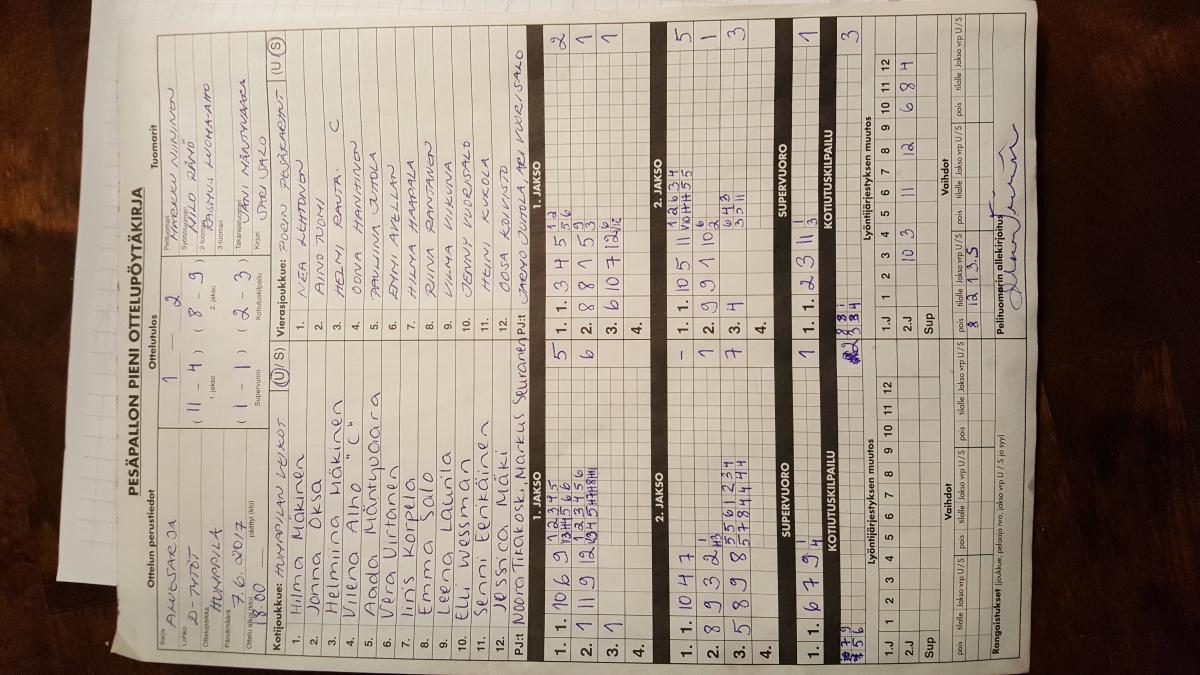 PESÄPALLON PIENI OTTELUPÖYTÄKIRJA
Ottelun perustiedot Ottelutulos Tuomarit
Sarja ALUESARJA
Lohko D-TYTÖT
Ottelupaikka HUMPPILA
Päivämäärä 7.6.2017
Ottelu alkoi (klo) 18.00 päättyi (klo)
1 — 2
( 11 - 4 ) ( 8 - 9 )
1. jakso 2. jakso
( 1 - 1 ) ( 2 - 3 )
Supervuoro Kotiutuskilpailu
Pelituomari MARKKU NIININEN
Syöttötuomari NIILO RÄMÖ
2-tuomari RASMUS LUOMA-AHO
3-tuomari
Takarajatuomari JANI MÄNTYVAARA
Kirjuri SARI SALO
Kotijoukkue: HUMPPILAN VEIKOT (U/S)
1. Hilma Mäkinen
2. Jonna Oksa
3. Helmiina Mäkinen
4. Vilena Alho "C"
5. Aada Mäntyvaara
6. Vera Virtanen
7. Iiris Korpella
8. Emma Salo
9. Leena Laurila
10. Elli Wessman
11. Senni Eerikäinen
12. Jessica Mäki
PJ:t Noora Tikakoski, Markus Seuranen
Vierasjoukkue: PORIN PESÄKARHUT (U/S)
1. NEA LEHTONEN
2. AINO TUOMI
3. HELMI RAUTA C
4. OONA HANHINEN
5. PAULIINA JUTOLA
6. EMMI AVELLAN
7. HILMA HAAPALA
8. RIINA RANTANEN
9. VILMA VIIKUNA
10. JENNY VUORISALO
11. HEINI KUKOLA
12. OOSA KOIVISTO
PJ:t JARMO JUTOLA, ARI VUORISALO
1. JAKSO 1. JAKSO
1. 1. 10 6 9 5
2. 1 11 9 12 6
3. 1
4.
1. 1. 3 4 5 2
2. 8 8 1 5 1
3. 6 10 7 12 1
4.
2. JAKSO 2. JAKSO
1. 1. 10 4 7 -
2. 8 9 3 2 1
3. 5 8 9 8 7
4.
1. 1. 10 5 11 5
2. 9 9 1 10 1
3. 4 3
4.
SUPERVUORO SUPERVUORO
1. 1. 6 7 9 1
1. 1. 2 3 11 1
KOTIUTUSKILPAILU KOTIUTUSKILPAILU
3
Lyöntijärjestyksen muutos Lyöntijärjestyksen muutos
1.J 1 2 3 4 5 6 7 8 9 10 11 12
2.J
Sup
1.J 1 2 3 4 5 6 7 8 9 10 11 12
2.J 10 3 11 12 6 8 4
Sup
Vaihdot Vaihdot
pois tilalle Jakso vrp U/S pois tilalle Jakso vrp U/S pois tilalle Jakso vrp U/S
pois tilalle Jakso vrp U/S pois tilalle Jakso vrp U/S pois tilalle Jakso vrp U/S
8 12 1 3. S
Rangaistukset (joukkue, pelaaja nro, jakso vrp U / S ja syy)
Pelituomarin allekirjoitus